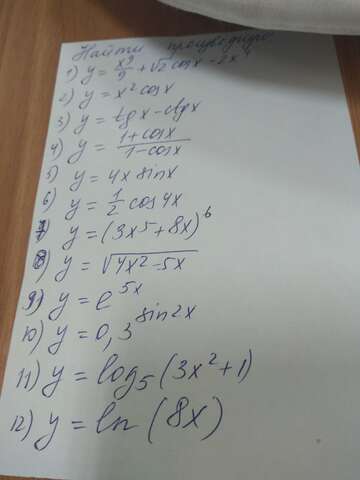 Найти производную
1) y = x⁹/9 + √2 cosx - 2x⁴
2) y = x² cosx
3) y = tgx - ctgx
4) y = (1 + cosx)/(1 - cosx)
5) y = 4x sinx
6) y = 1/2 cos4x
7) y = (3x⁵ + 8x)⁶
8) y = √(4x2 - 5x)
9) y = e^5x
10) y = 0,3^sin2x
11) y = log₅(3x² + 1)
12) y = ln(8x)